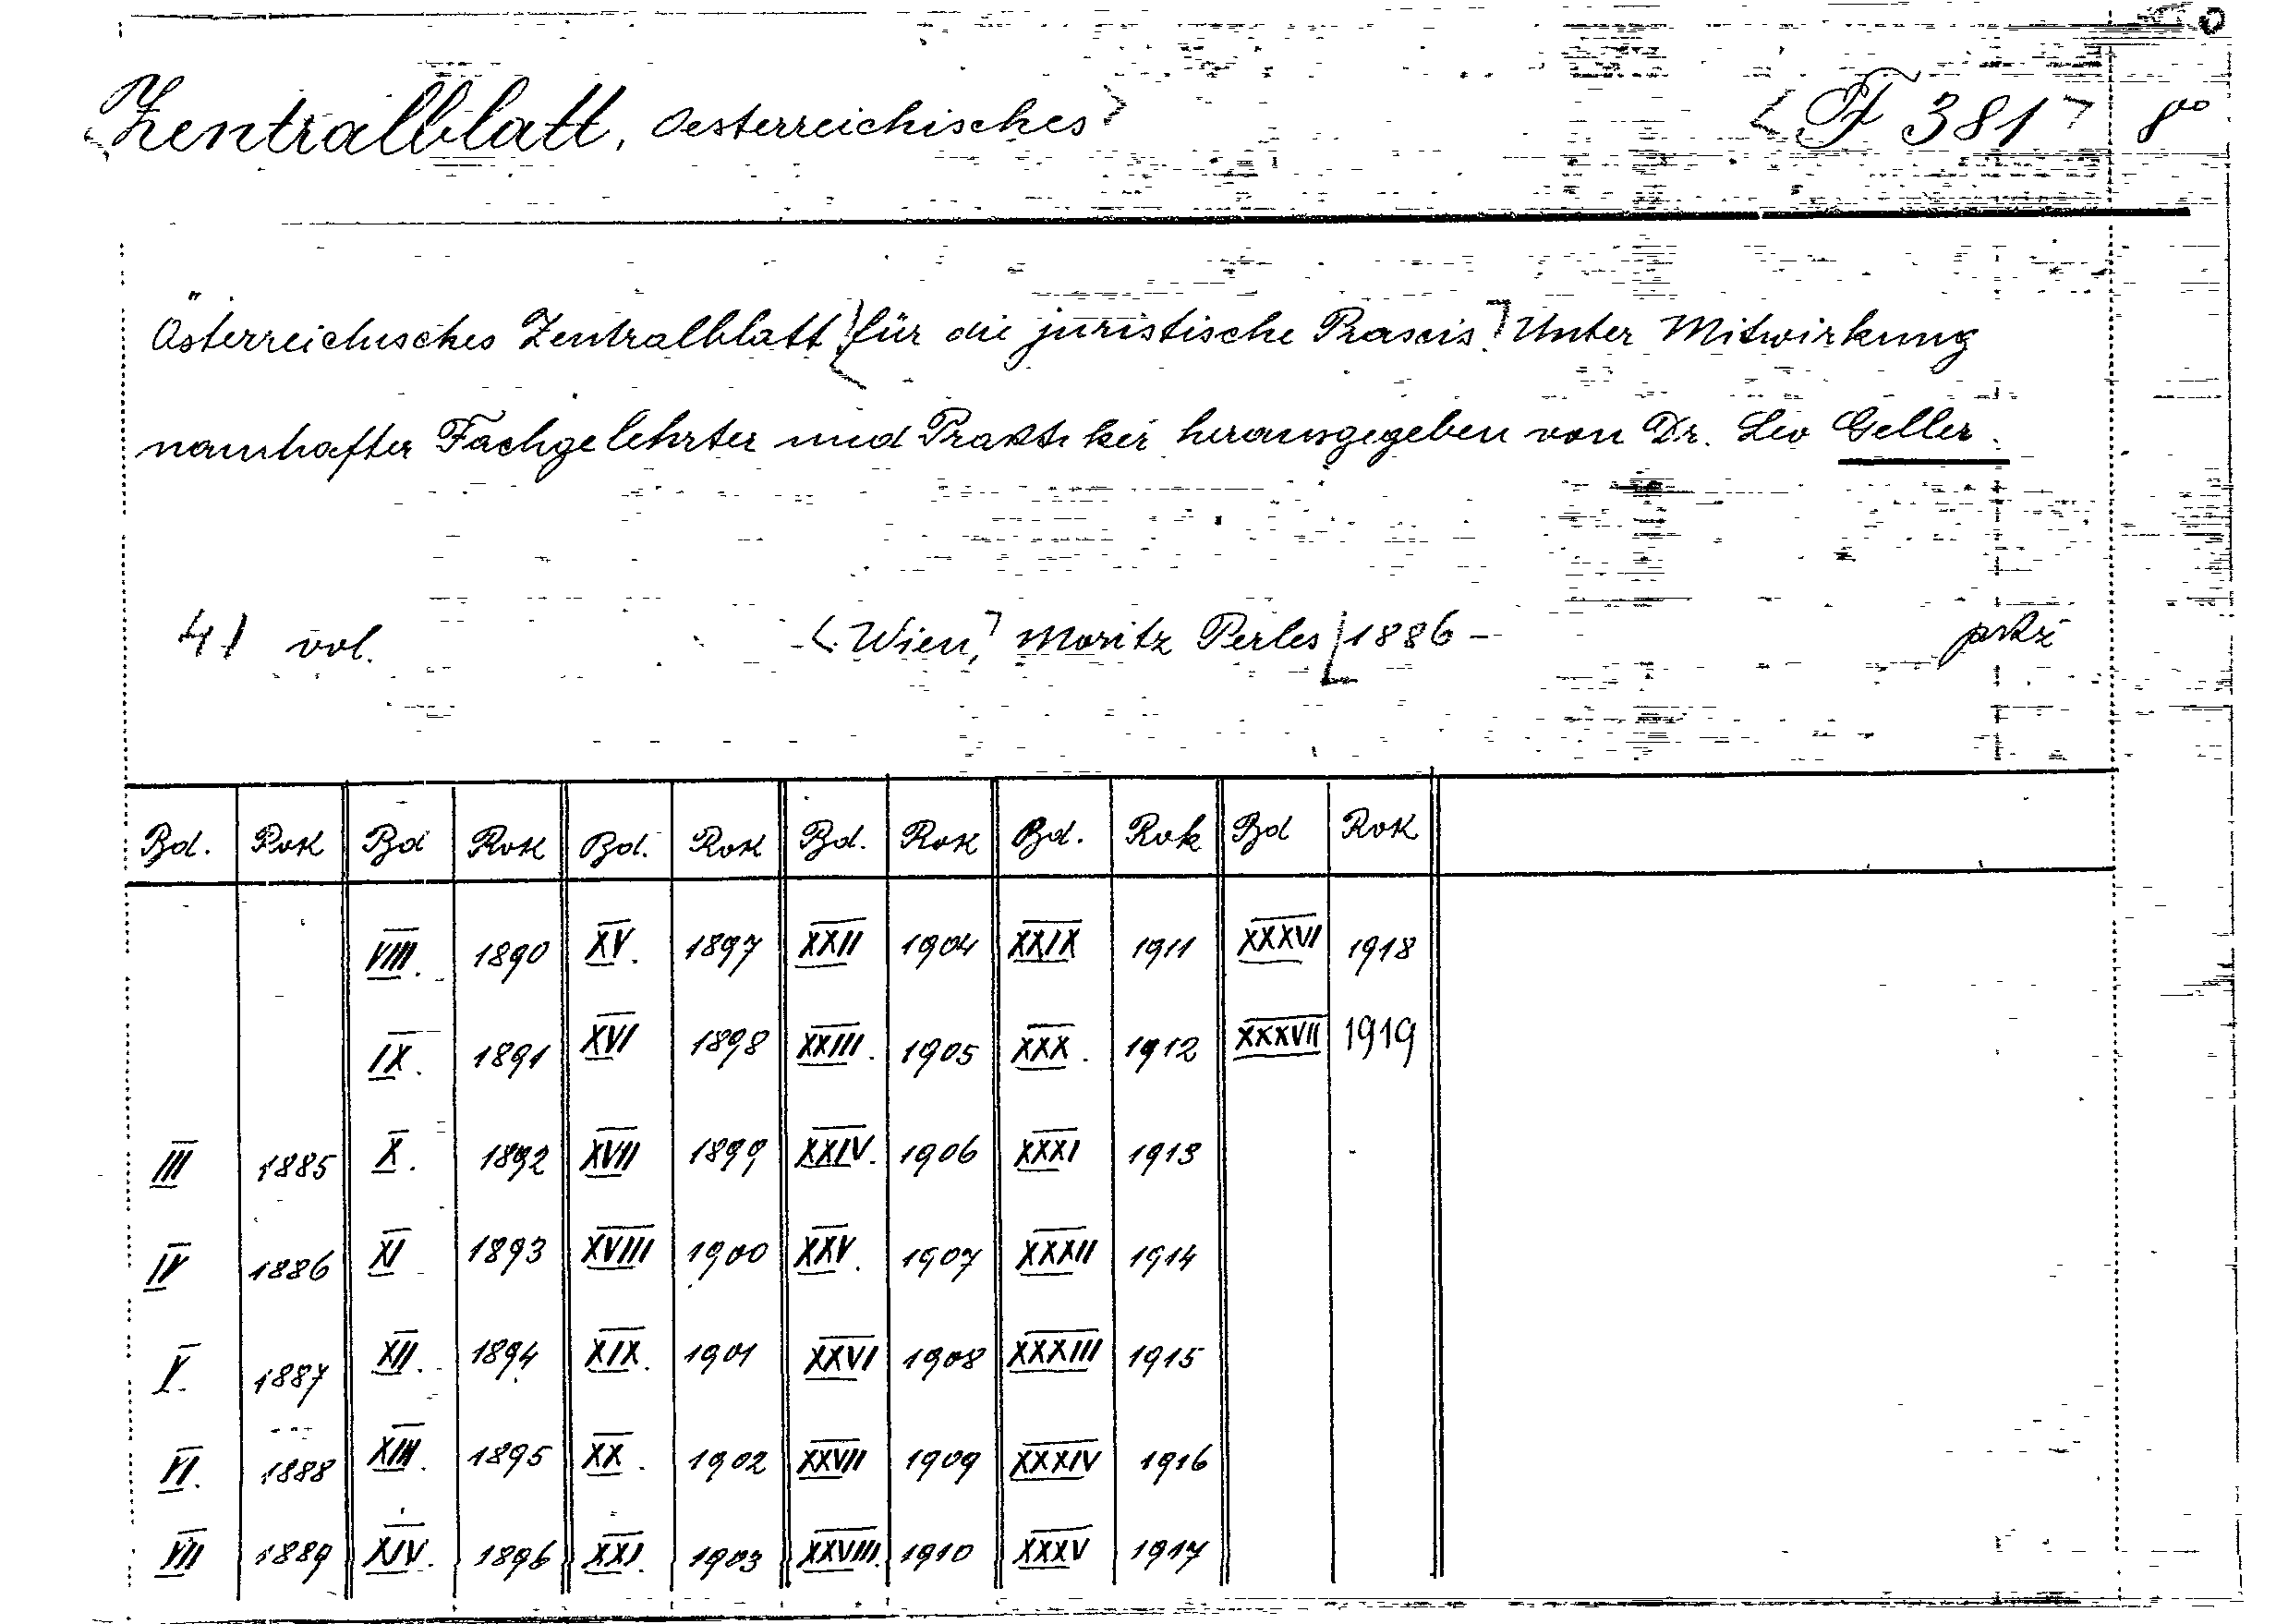 Zentralblatt, Oesterreichisches F 381 8°
Österreichisches Zentralblatt für die juristische Praxis. Unter Mitwirkung
namhafter Fachgelehrter und Praktiker herausgegeben von Dr. Leo Geller.
41 vol. Wien, Moritz Perles 1886 -
Bd. Rok Bd Rok Bd. Rok Bd. Rok Bd. Rok Bd Rok
VIII. 1890 XV. 1897 XXII 1904 XXIX 1911 XXXVI 1918
IX. 1891 XVI 1898 XXIII. 1905 XXX. 1912 XXXVII 1919
III 1885 X. 1892 XVII 1899 XXIV. 1906 XXXI 1913
IV 1886 XI 1893 XVIII 1900 XXV. 1907 XXXII 1914
V. 1887 XII. 1894 XIX. 1901 XXVI 1908 XXXIII 1915
VI. 1888 XIII. 1895 XX. 1902 XXVII 1909 XXXIV 1916
VII 1889 XIV. 1896 XXI. 1903 XXVIII. 1910 XXXV 1917